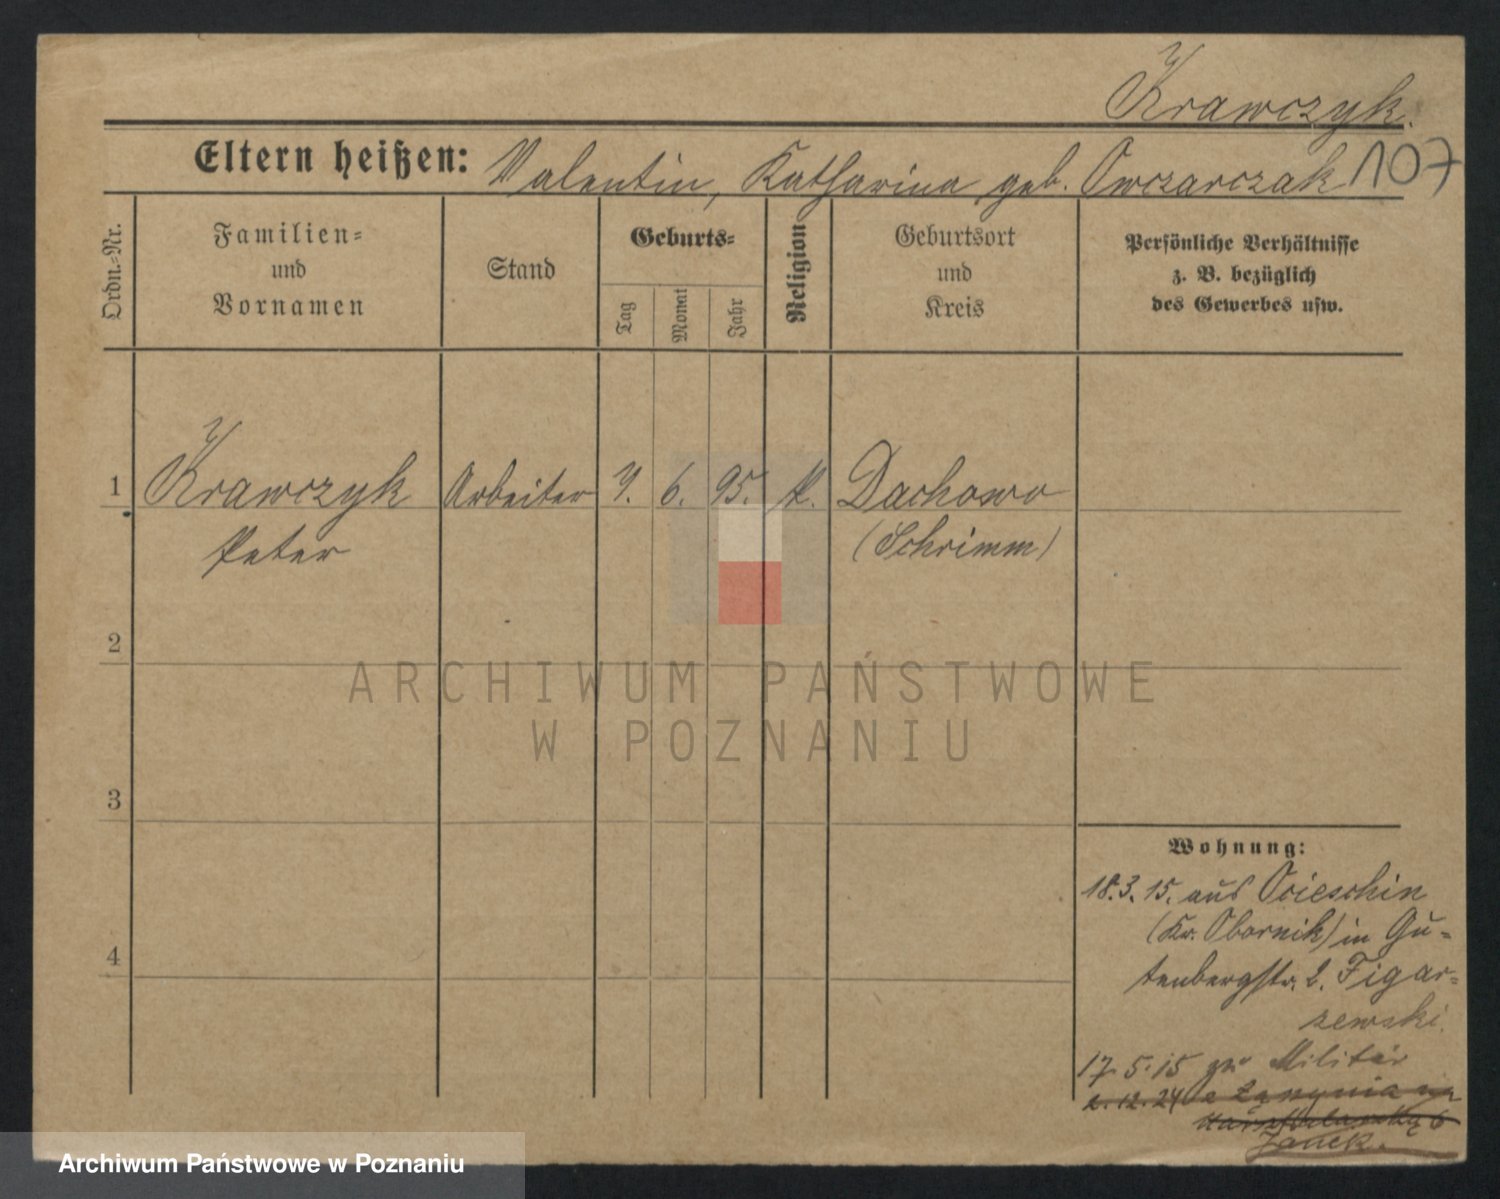 Krawczyk.
107
Eltern heißen: Valentin, Katharina geb. Owczarczak
Ordn.-Nr.
Familien-
und
Vornamen
Stand
Geburts-
Tag
Monat
Jahr
Religion
Geburtsort
und
Kreis
Persönliche Verhältnisse
z. B. bezüglich
des Gewerbes usw.
1 Krawczyk Arbeiter 6. 95. k. Dachowo
Peter (Schrimm)
2
3
4
Wohnung:
18.3.15. aus Ocieschin
(Kr. Obornik) in Gu-
tenbergstr. 2. Figar-
zewski.
17.5.15 zu Militär
2.12.24
Janek.
ARCHIWUM PAŃSTWOWE
W POZNANIU
Archiwum Państwowe w Poznaniu